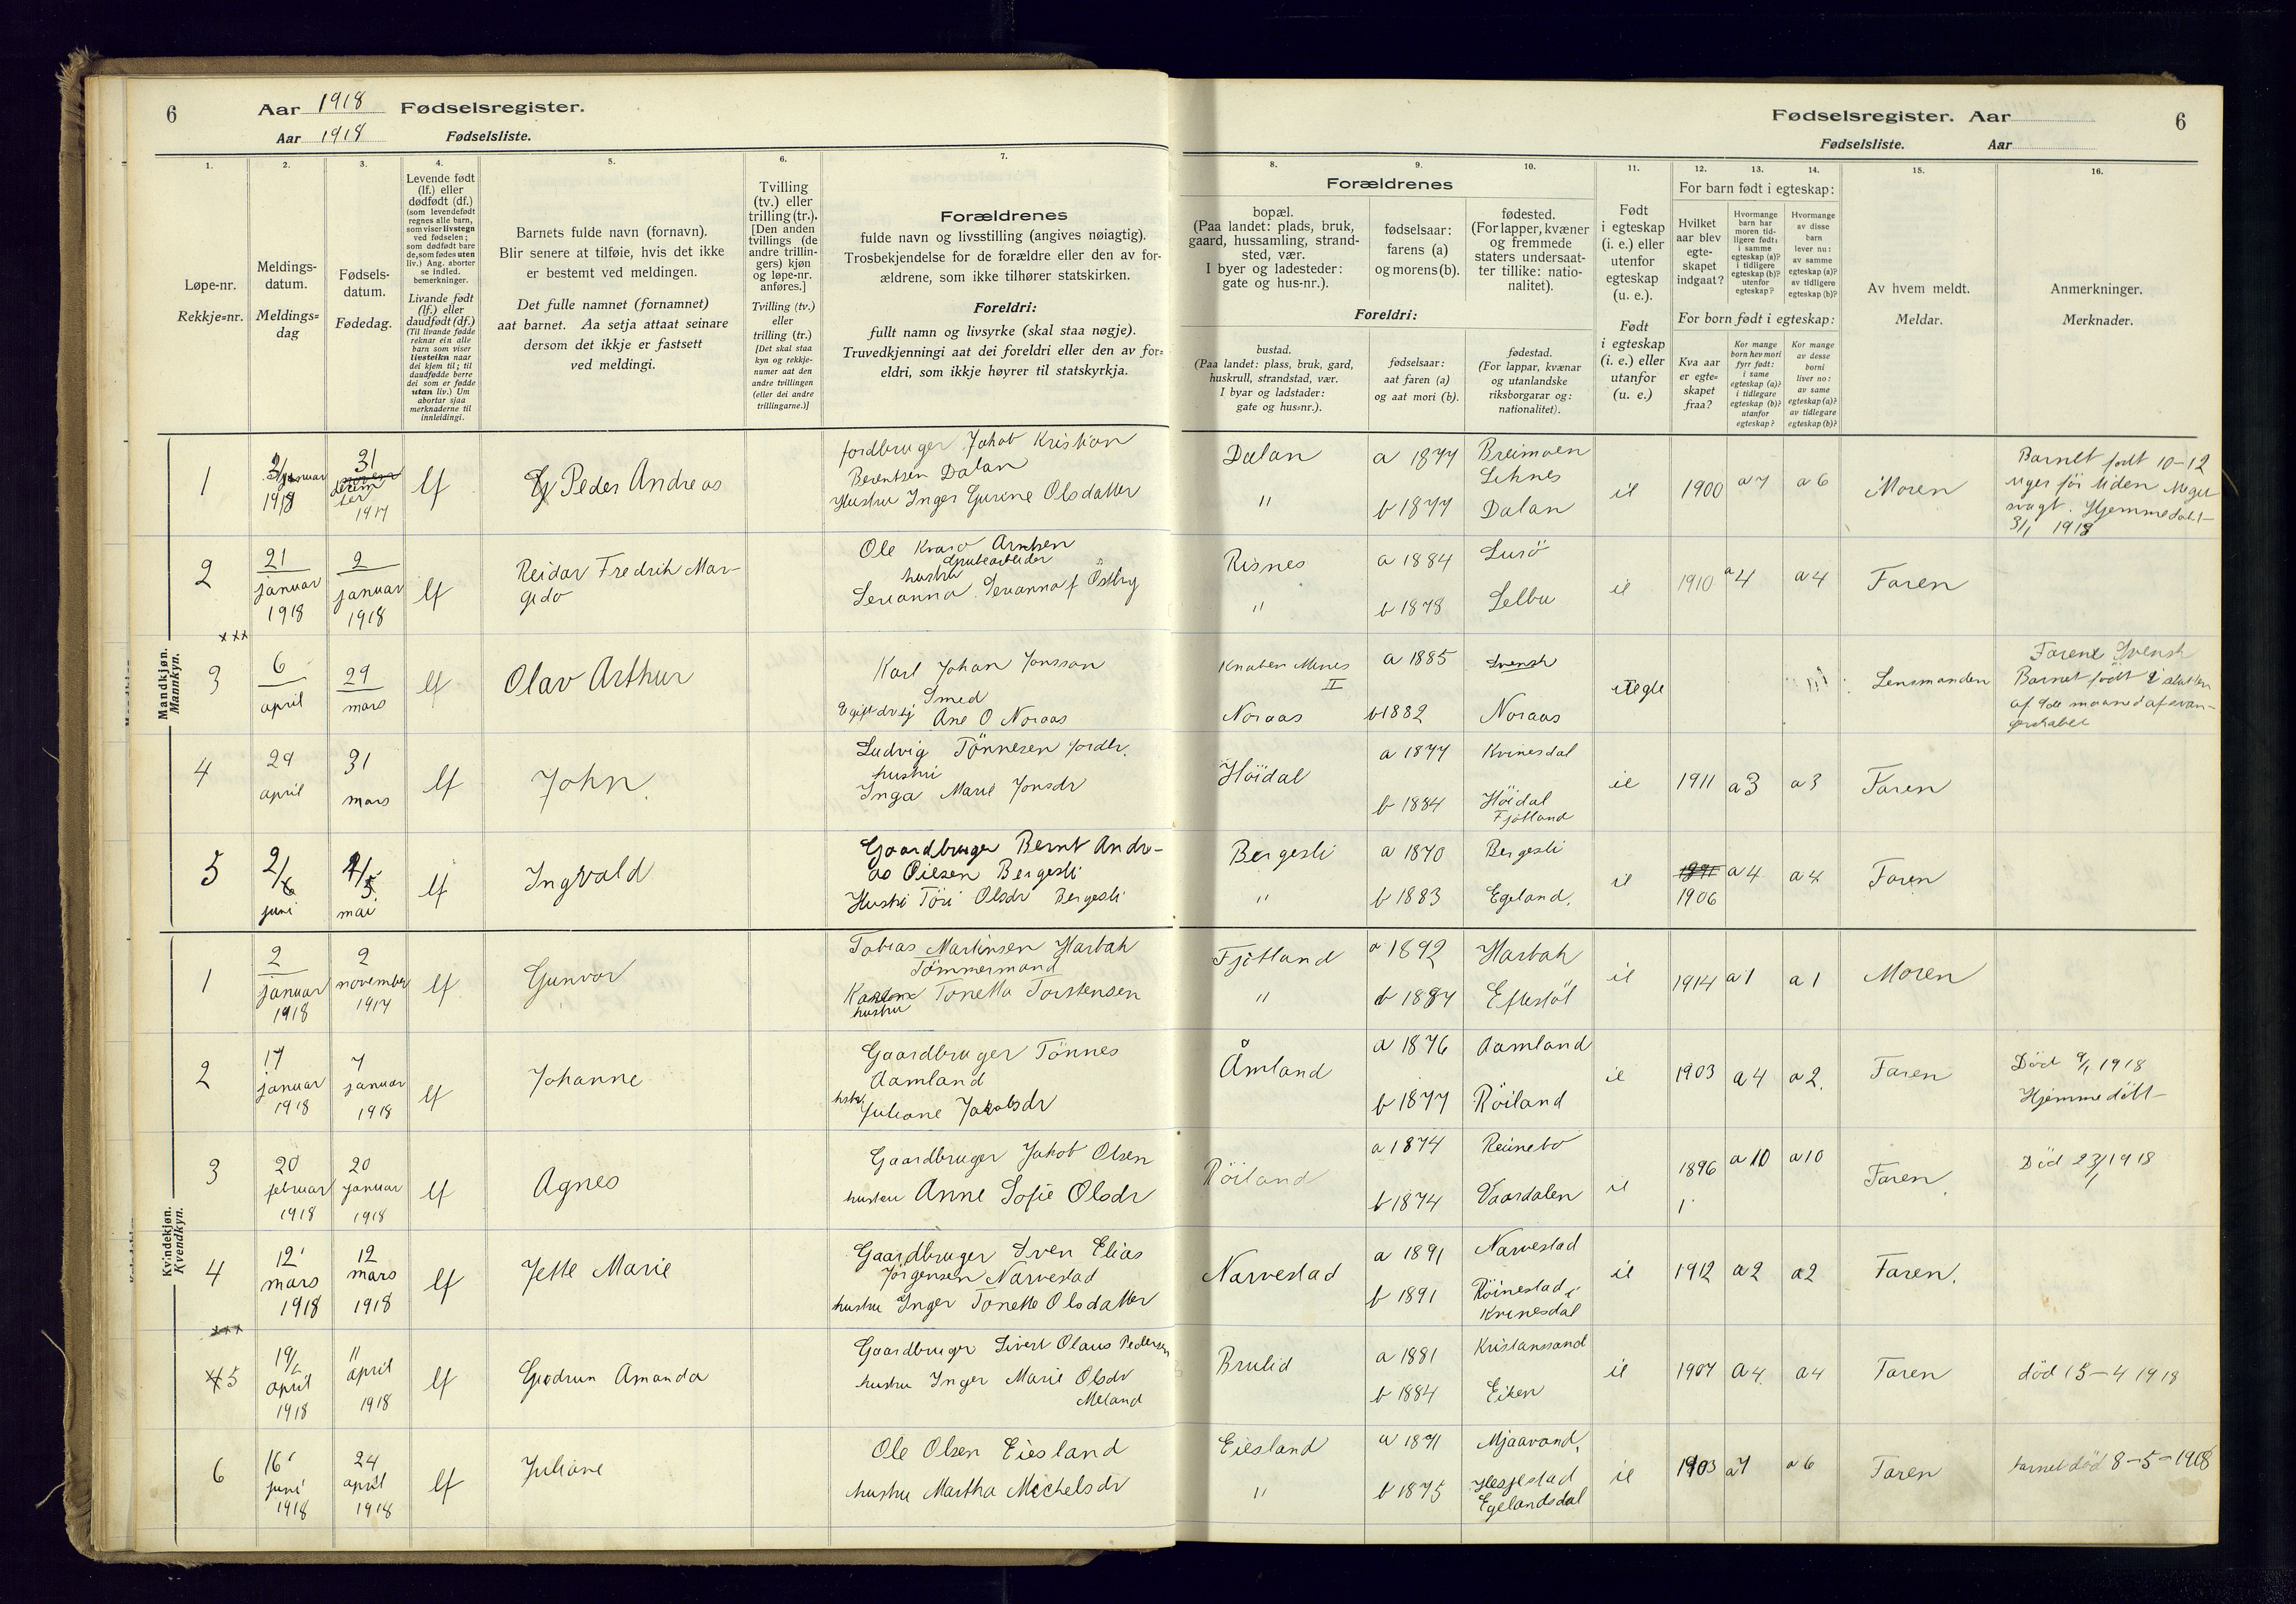 6
Aar 1918 Fødselsregister.
Aar 1918 Fødselsliste.
Fødselsregister. Aar
6
Fødselsliste. Aar
1.
Løpe-nr.
Rekkje-nr.
2.
Meldings-
datum.
Meldings-
dag
3.
Fødsels-
datum.
Fødedag.
4.
Levende født
(lf.) eller
dødfødt (df.)
(som levendefødt
regnes alle barn,
som viser livstegn
ved fødselen;
som dødfødt bare
de, som fødes uten
liv.) Ang. aborter
se indled.
bemerkninger.
Livande født
(lf.) eller
daudfødt (df.)
(Til livande fødde
reknar ein alle
barn som viser
livsteikn naar
dei kjem til; til
daudfødde berre
dei som er fødde
utan liv.) Um
abortar sjaa
merknaderne til
innleidingi.
5.
Barnets fulde navn (fornavn).
Blir senere at tilføie, hvis det ikke
er bestemt ved meldingen.
Det fulle namnet (fornamnet)
aat barnet. Aa setja attaat seinare
dersom det ikkje er fastsett
ved meldingi.
6.
Tvilling
(tv.) eller
trilling (tr.).
[Den anden
tvillings (de
andre trillin-
gers) kjøn
og løpe-nr.
anføres.]
Tvilling (tv.)
eller
trilling (tr.)
[Det skal staa
kyn og rekkje-
numer aat den
andre tvillingen
(eller dei andre
trillingarne.)]
7.
Forældrenes
fulde navn og livsstilling (angives nøiagtig).
Trosbekjendelse for de forældre eller den av for-
ældrene, som ikke tilhører statskirken.
Foreldri:
fullt namn og livsyrke (skal staa nøgje).
Truvedkjenningi aat dei foreldri eller den av for-
eldri, som ikkje høyrer til statskyrkja.
8.
Forældrenes
bopæl.
(Paa landet: plads, bruk,
gaard, hussamling, strand-
sted, vær.
I byer og ladesteder:
gate og hus-nr.).
Foreldri:
bustad.
(Paa landet: plass, bruk, gard,
huskrull, strandstad, vær.
I byar og ladstader:
gate og hus-nr.).
9.
fødselsaar:
farens (a)
og morens (b).
fødselsaar:
aat faren (a)
og aat mori (b).
10.
fødested.
(For lapper, kvæner
og fremmede
staters undersaat-
ter tillike: natio-
nalitet).
fødestad.
(For lappar, kvænar
og utanlandske
riksborgarar og:
nationalitet).
11.
Født
i egteskap
(i. e.) eller
utenfor
egteskap
(u. e.).
Født
i egteskap
(i. e.) eller
utanfor
(u. e.)
12. 13. 14.
For barn født i egteskap:
Hvilket
aar blev
egte-
skapet
indgaat?
Hvormange
barn har
moren tid-
ligere født:
i samme
egteskap (a)?
i tidligere
egteskap (b)?
utenfor
egteskap?
Hvormange
av disse
barn
lever nu:
av samme
egteskap (a)?
av tidligere
egteskap (b)?
For born født i egteskap:
Kva aar
er egte-
skapet
fraa?
Kor mange
born hev mori
fyrr født:
i same
egteskap (a)?
i tidlegare
egteskap (b)?
utanfor
egteskap?
Kor mange
av desse
borni
liver no:
av same
egteskap (a)?
av tidlegare
egteskap (b)?
15.
Av hvem meldt.
Meldar.
16.
Anmerkninger.
Merknader.
Mandkjøn.
Mannkyn.
1
januar
1918
31
1917
lf
Peder Andreas
Jordbruger Jakob Kristian
Berentsen Dalan
Hustru Inger Gurine Olsdatter
Dalan
"
a 1877
b 1877
Breimoen
Dalan
ie
1900
a 7
a 6
Moren
Barnet født 10-12
uger før tiden. Meget
svagt. Hjemmedøbt
3/1 1918
2
21
januar
1918
2
januar
1918
lf
Reidar Fredrik Mar-
gido
Ole Arntsen
Grubearbeider
hustru
Risnes
"
a 1884
b 1878
Lusö
Selbu
ie
1910
a 4
a 4
Faren
xxx
3
6
april
29
mars
lf
Olav Arthur
Karl Johan Jonsson
Smed
Ane O Noraas
Knaben Mines
II
Noraas
a 1885
b 1882
Svensk
Noraas
Lensmanden
Farene Svensk
Barnet født i slutten
af 9de maaned af svan-
gerskabet
4
29
april
31
mars
lf
John.
Ludvig Tönnesen jordbr.
hustru
Inga Marie Jonsdr
Höidal
a 1877
b 1884
Kvinesdal
Höidal
Fjotland
ie
1911
a 3
a 3
Faren
5
2/6
juni
4/5
mai
lf
Ingvald
Gaardbruger Bernt Andr-
as Eilsen Bergesli
Hustru Töri Olsdr Bergesli
Bergesli
"
a 1870
b 1883
Bergesli
Egeland.
ie
1906
a 4
a 4
Faren
Kvindekjøn.
Kvendkyn.
1
2
januar
1918
2
november
1917
lf
Gunvor
Tobias Martinsen Hartah
Tömmermand
Tonetta Torstensen
hustru
Fjotland
"
a 1892
b 1887
Hartah
Eftestöl
ie
1914
a 1
a 1
Moren
2
17
januar
1918
7
januar
1918
lf
Johanne
Gaardbruger Tönnes
Aamland
hstr. Juliane Jakobsdr
Åmland
a 1876
b 1877
Aamland
Röiland
ie
1903
a 4
a 2.
Faren
Död 9/1 1918
Hjemmedöbt
3
20
februar
1918
20
januar
1918
lf
Agnes
Gaardbruger Jakob Olsen
hustru Anne Sofie Olsdr
Röiland
a 1874
b 1874
Reinebo
Vaardalen
ie
1896
a 10
a 10
Faren
Död 23/1 1918
4
12
mars
1918
12
mars
1918
lf
Jette Marie
Gaardbruger Sven Elias
Jörgensen Narvestad
hustru Inger Tonette Olsdatter
Narvestad
a 1891
b 1891
Narvestad
Röinestad i
Kvinesdal
ie
1912
a 2
a 2
Faren.
xxx
5
19/
april
1918
11
april
1918
lf
Gudrun Amanda
Gaardbruger Sivert Olaus Pedersen
hustru Inger Marie Olsdr
Meland
Brulid
a 1881
b 1884
Kristianssand
Eiken
ie
1907
a 4
a 4
Faren
död 15-4 1918
6
16
juni
1918
24
april
1918
lf
Juliane
Ole Olsen Eiesland
hustru Martha Michelsdr
Eiesland
"
a 1871
b 1875
Mjaavand,
Hesjestad
Egelandsdal
ie
1903
a 7
a 6
Faren
barnet död 8-5-1918